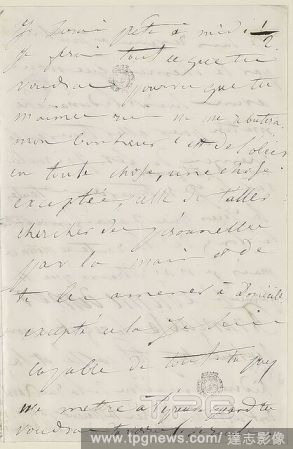 Je serai prête à midi 1/2
je ferai tout ce que tu
voudras pourvu que tu
m'aimes rien ne me rebutera
mon bonheur c'est de t'obéir
en toute chose, une chose
exceptée, celle de t'aller
chercher des péronnelles
par la main et de
te les amener à domicile
excepté cela je suis
capable de tout tu peux
me mettre à l'épreuve quand tu
voudras
www.tpgnews.com / 達志影像
TPG